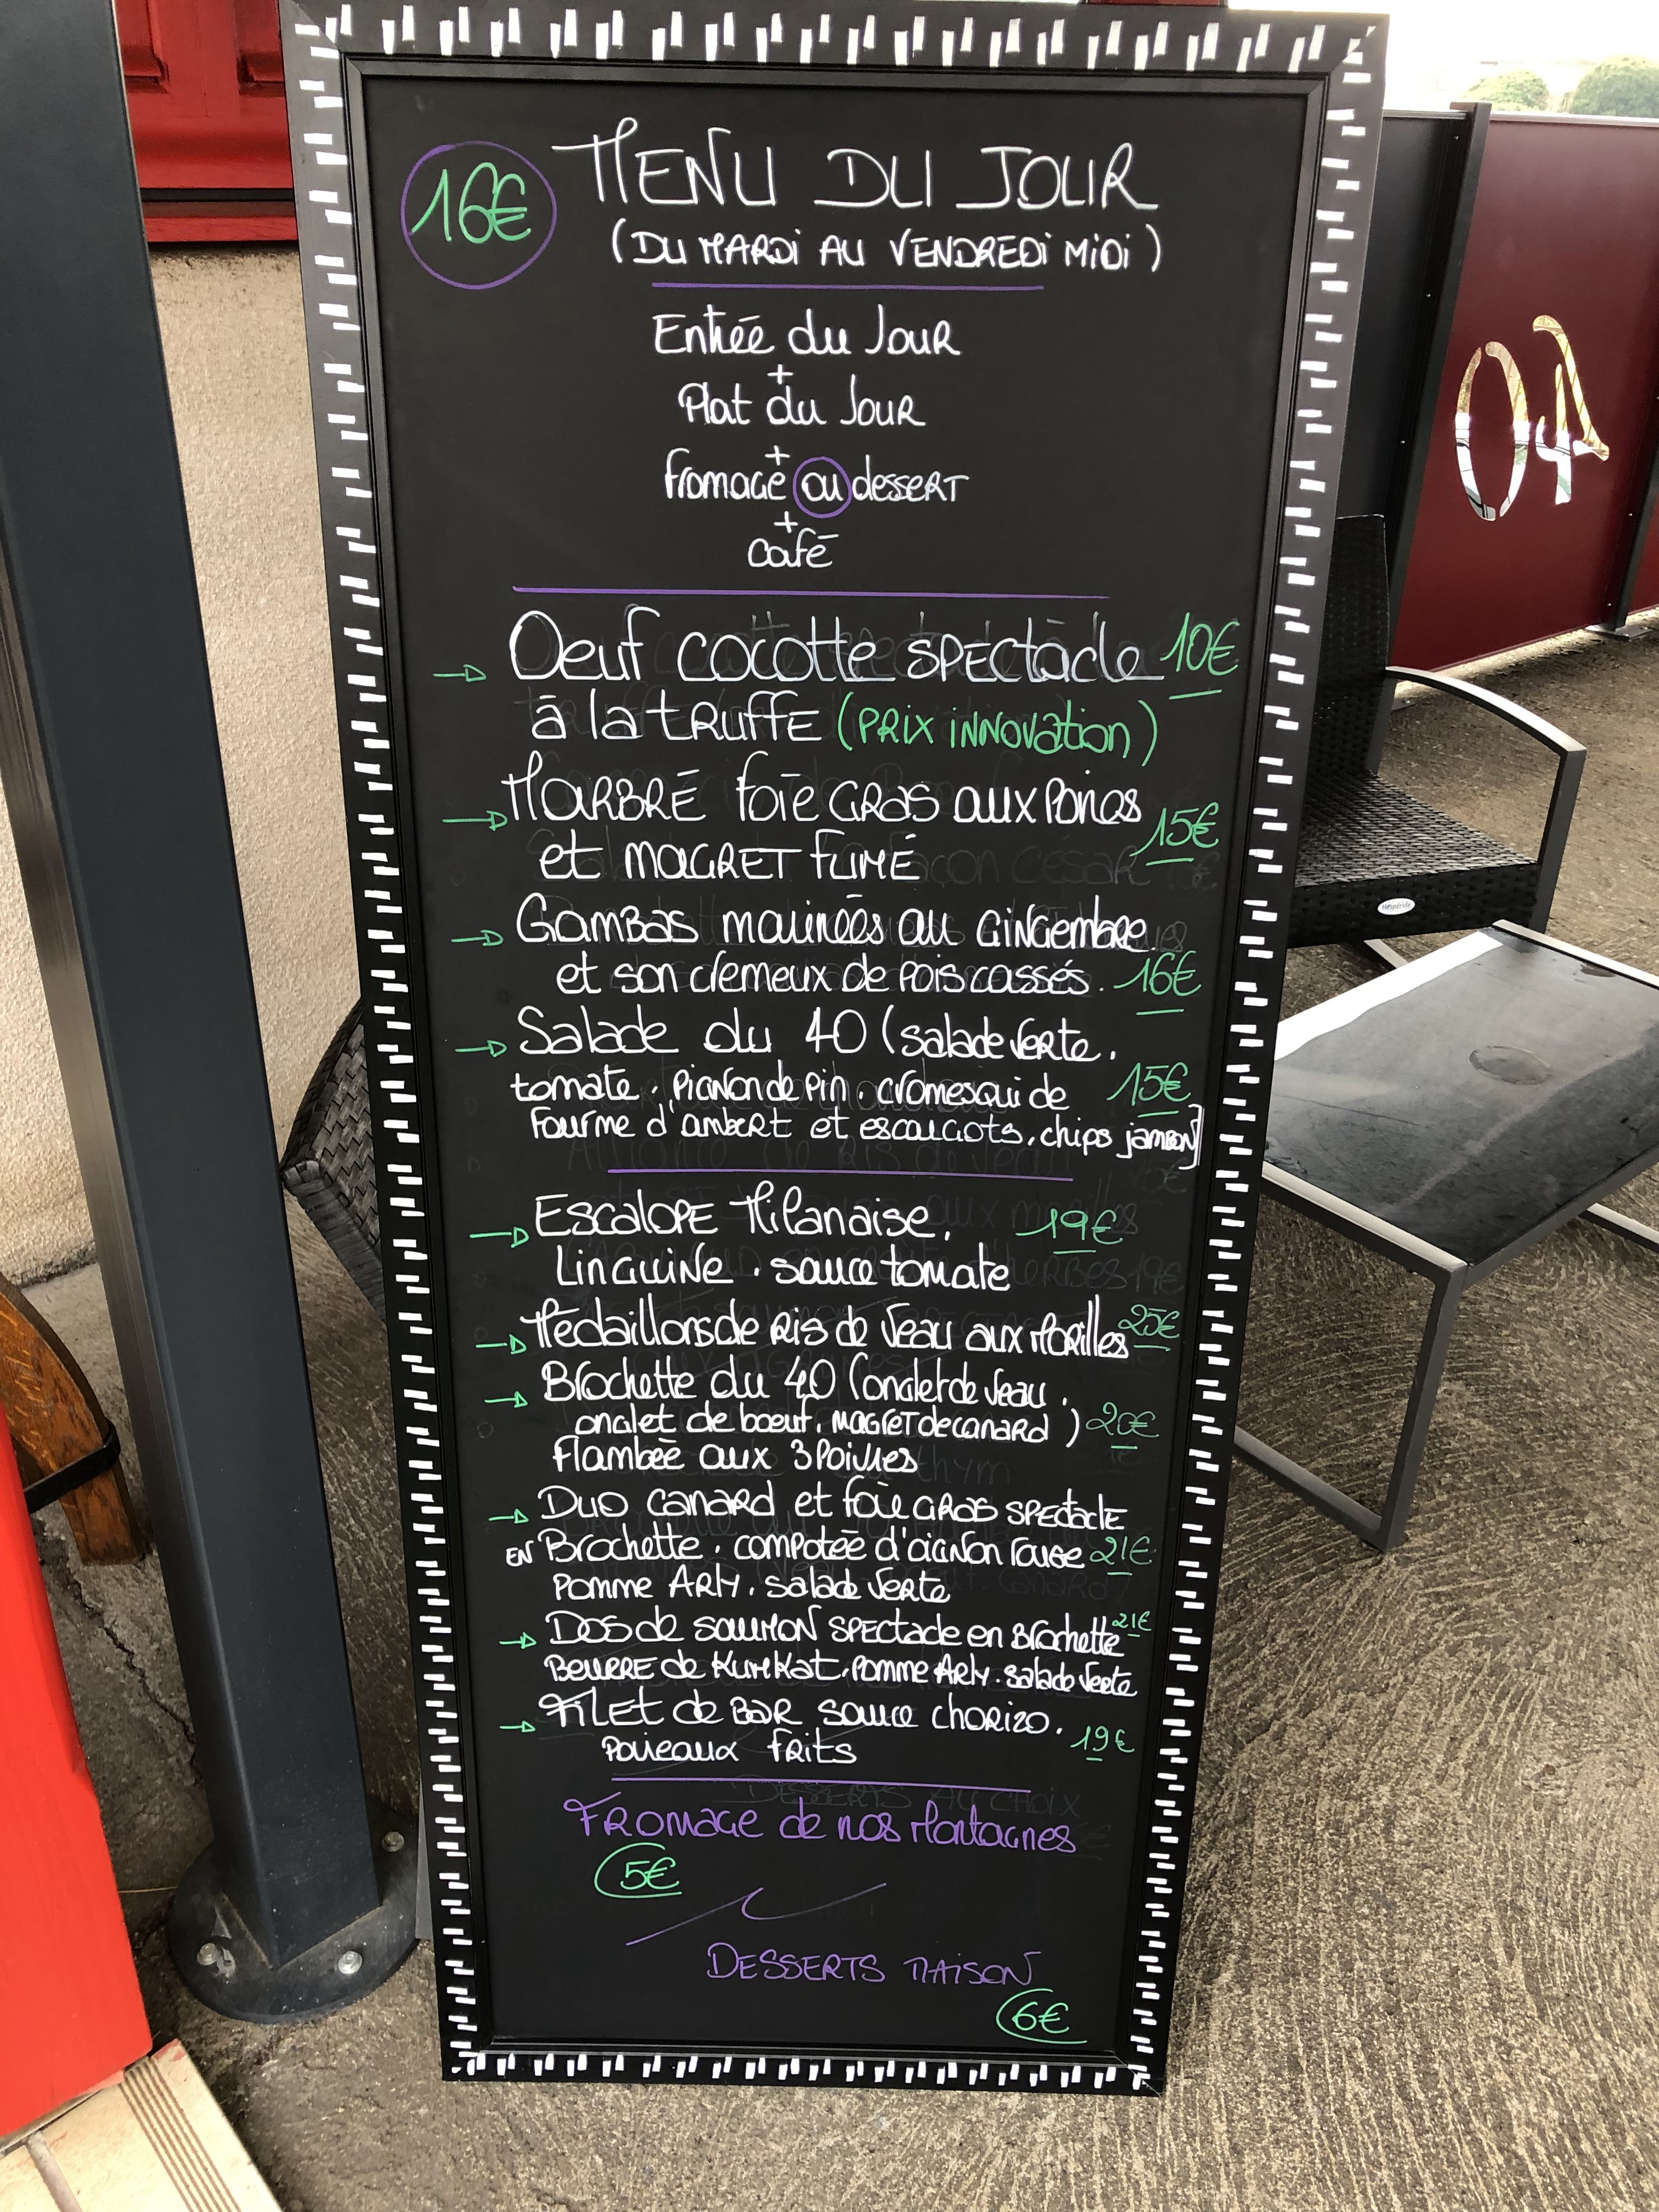 16€ MENU DU JOUR
(DU MARDI AU VENDREDI MIDI)
Entrée du Jour
+
Plat du Jour
+
fromage ou dessert
+
café
→ Oeuf cocotte spectacle 10€
à la truffe (prix innovation)
→ Marbré foie gras aux Poires 15€
et magret fumé
→ Gambas marinées au gingembre
et son crémeux de pois cassés. 16€
→ Salade du 40 (salade verte,
tomate, pignon de pin, cromesqui de 15€
fourme d'ambert et escargots, chips jambon)
→ Escalope Milanaise, 19€
Linguine, sauce tomate
→ Médaillons de Ris de Veau aux Morilles 25€
→ Brochette du 40 (onglet de veau,
onglet de boeuf, magret de canard) 20€
flambée aux 3 Poivres
→ Duo canard et foie gras spectacle
en Brochette, compotée d'oignon rouge 21€
Pomme Arly, salade verte
→ Dos de saumon spectacle en Brochette 21€
Beurre de Kumkat, Pomme Arly, salade verte
→ Filet de Bar sauce chorizo, 19€
poireaux frits
Fromage de nos Montagnes
5€
Desserts Maison
6€
40
Hespéride